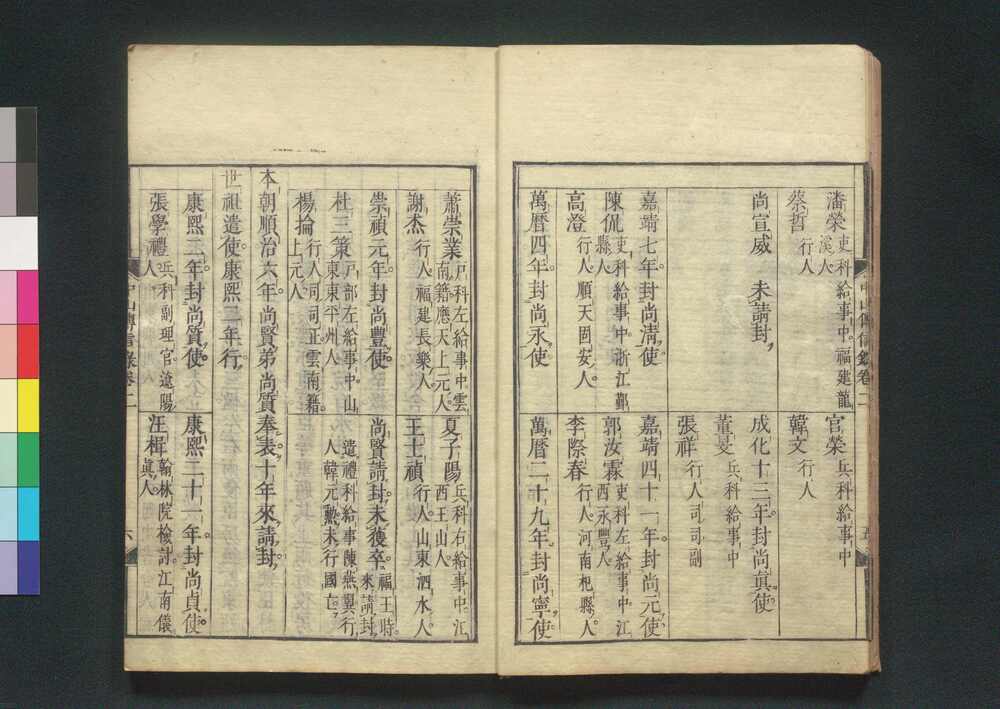 潘榮 吏科給事中。福建龍溪人
官榮 兵科給事中
蔡哲 行人
韓文 行人
尚宣威 未請封
成化十三年。封尚眞。使
董旻 兵科給事中
張祥 行人司司副
嘉靖七年。封尚淸。使
嘉靖四十一年。封尚元。使
陳侃 吏科給事中。浙江鄞縣人
郭汝霖 吏科左給事中。江西永豐人
高澄 行人。順天固安人
李際春 行人。河南杞縣人
萬曆四年。封尚永。使
萬曆二十九年。封尚寧。使
中山傳信錄卷二
五
蕭崇業 戸科左給事中。雲南籍。應天上元人
夏子陽 兵科右給事中。江西玉山人
謝杰 行人。福建長樂人
王士禎 行人。山東泗水人
崇禎元年。封尚豐。使
尚賢請封。未獲卒。福王時。來請封。
杜三策 戸部左給事中。山東東平州人
遣禮科給事陳燕翼。行人韓元勲。未行國亡。
楊掄 行人司司正。雲南籍。上元人
本朝順治六年。尚賢弟尚質奉表。十年來請封。
世祖遣使。康熙二年行。
康熙二年。封尚質。使
康熙二十一年。封尚貞。使
張學禮 兵科副理官。遼陽人
汪楫 翰林院檢討。江南儀眞人
中山傳信錄卷二
六